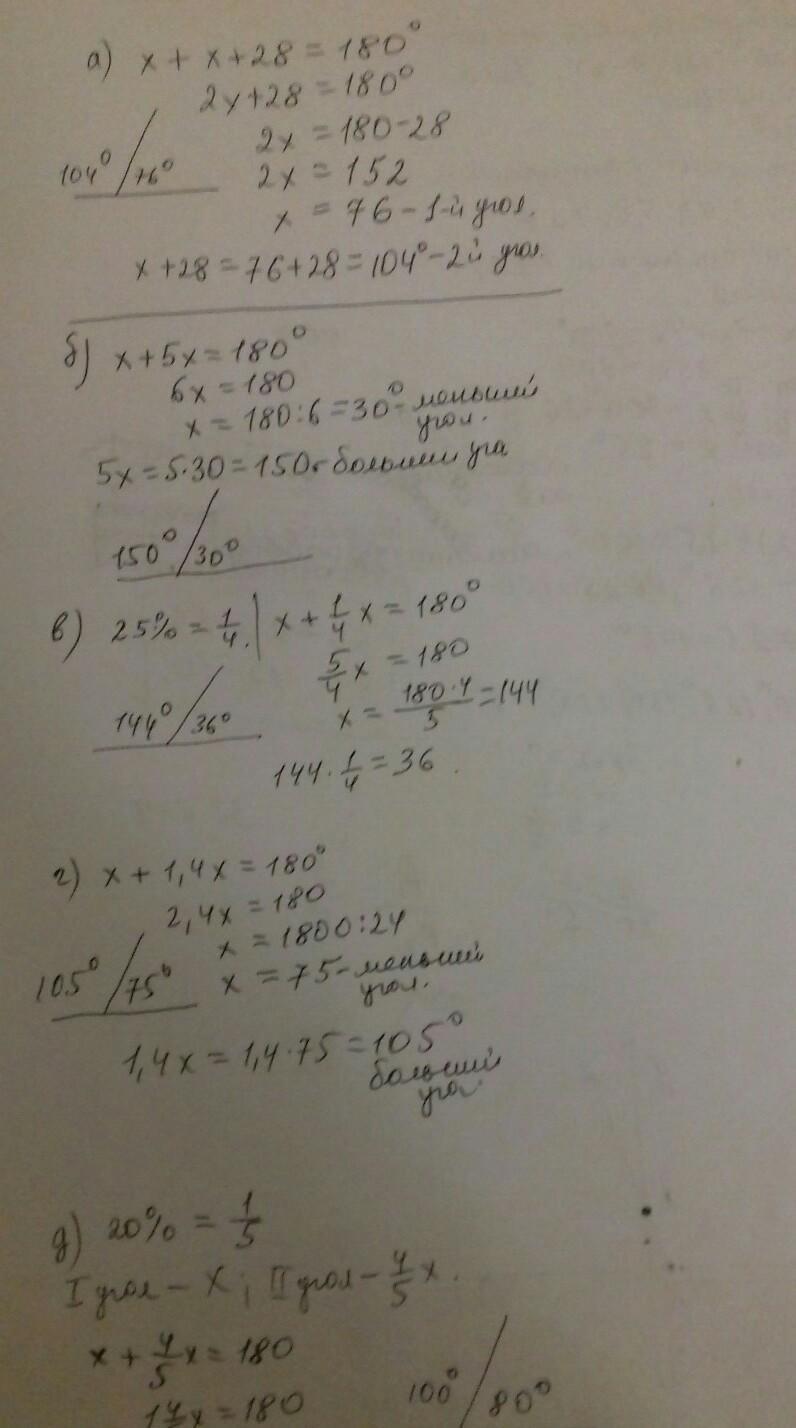 а) x + x+28 = 180°
2x+28 = 180°
2x = 180-28
104° / 76°
2x = 152
x = 76 - 1-й угол.
x +28 = 76+28 = 104° - 2й угол
б) x+5x = 180°
6x = 180
x = 180:6 = 30° - меньший
угол.
5x = 5·30 = 150 - больший
150° / 30°
в) 25% = 1/4. | x + 1/4 x = 180°
5/4 x = 180
144° / 36°
x = 180·4/5 = 144
144 · 1/4 = 36
г) x + 1,4x = 180°
2,4x = 180
x = 1800:24
105° / 75°
x = 75 - меньший
угол.
1,4x = 1,4·75 = 105°
больший
д) 20% = 1/5
I угол - x; II угол - 4/5 x.
x + 4/5 x = 180
1 4/5 x = 180
100° / 80°